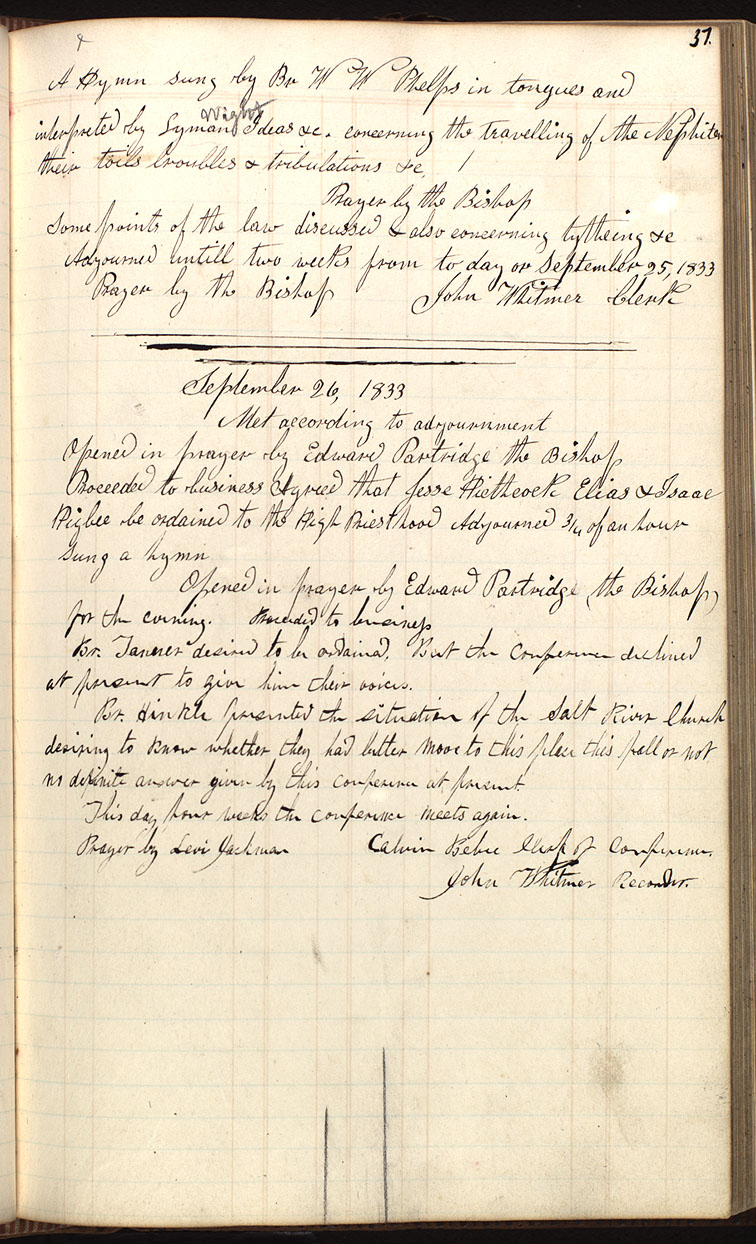 37.
&
A Hymn sung by Br W W Phelps in tongues and
interpreted by Lyman Wight Ideas &c. concerning the travelling of the Nephites
their toils troubles & tribulations &c.
Prayer by the Bishop
Some points of the law discussed & also concerning tytheing &c
Adjourned untill two weeks from to day or September 25, 1833
Prayer by the Bishop John Whitmer Clerk
September 26, 1833
Met according to adjournment
Opened in prayer by Edward Partridge the Bishop
Proceeded to business Agreed that Jesse Hitchcock Elias & Isaac
Higbee be ordained to the High Priesthood Adjourned 3/4 of an hour
Sung a hymn
Opened in prayer by Edward Partridge (the Bishop)
for the evening. Proceeded to business
Br. Tanner desired to be ordained. But the Conference declined
at present to give him their voices.
Br. Hinkle presented the situation of the Salt River Church
desiring to know whether they had better move to this place this fall or not
no definite answer given by this conference at present
This day four weeks the conference meets again.
Prayer by Levi Jackman Calvin Bebee Clerk of Conference.
John Whitmer Recorder.